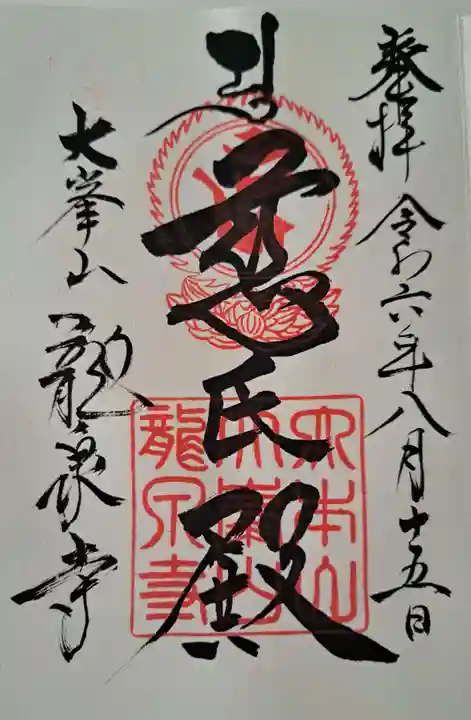 奉拝 令和六年八月十五日
慈氏殿
大峯山 龍泉寺
大本山
大峯山
龍泉寺